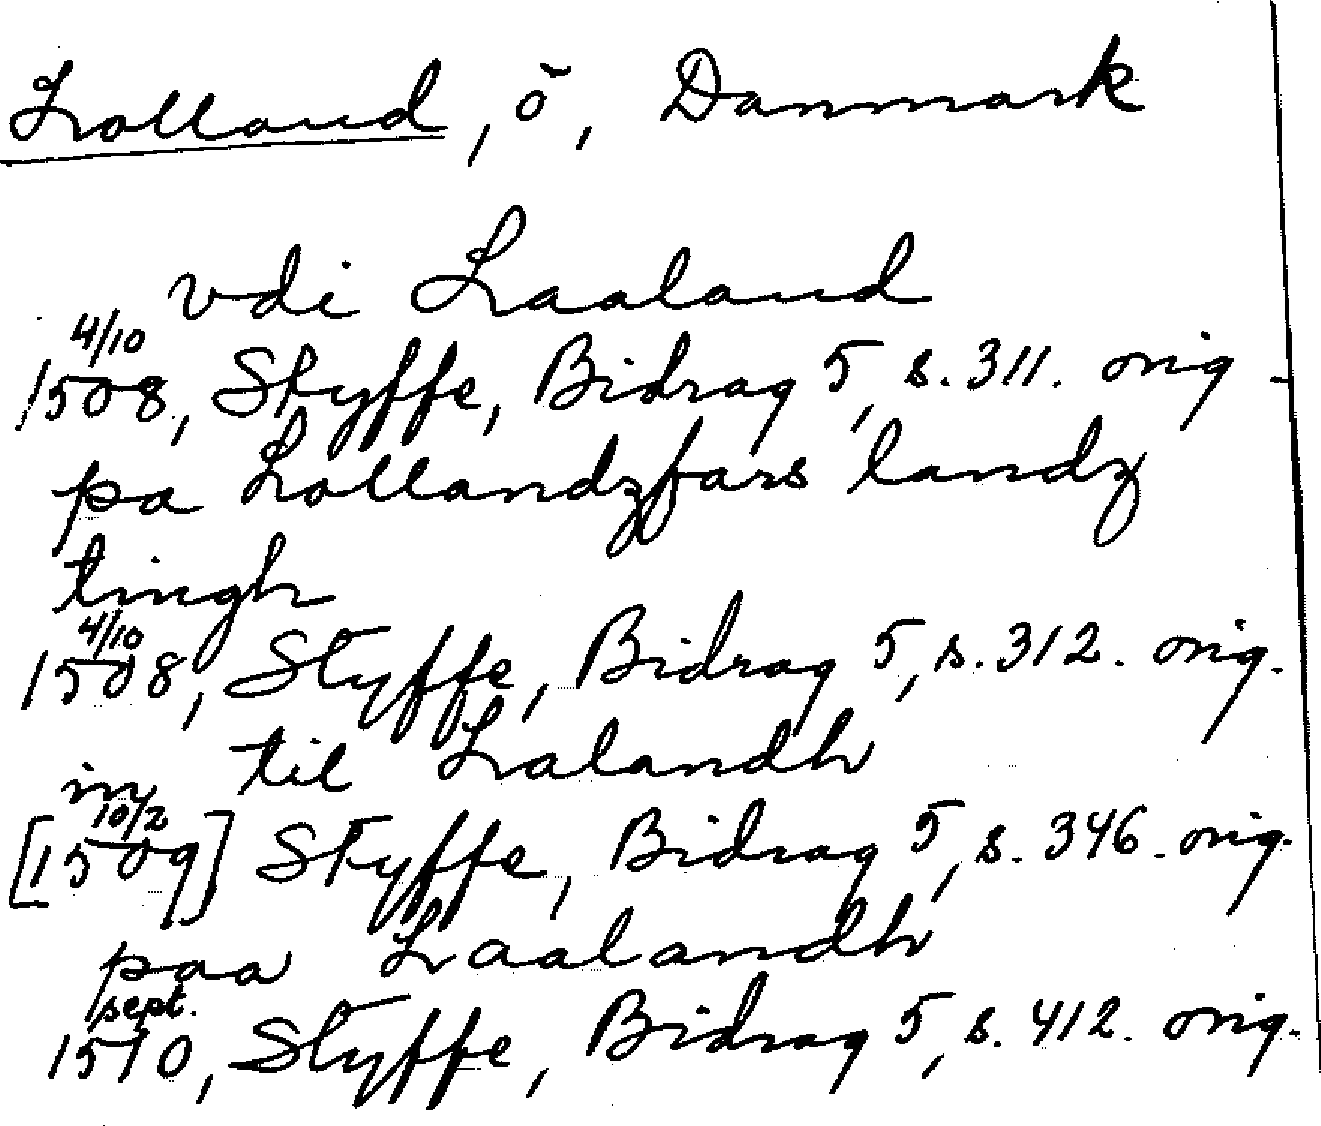 Lolland, ö, Danmark
vdi Laaland
4/10
1508, Styffe, Bidrag 5, s. 311. orig
pa Lollandzfars landz
tingh
4/10
1508, Styffe, Bidrag 5, s. 312. orig.
in til Lalandh
10/2
[1509] Styffe, Bidrag 5, s. 346. orig.
paa Laalandh
sept.
1510, Styffe, Bidrag 5, s. 412. orig.